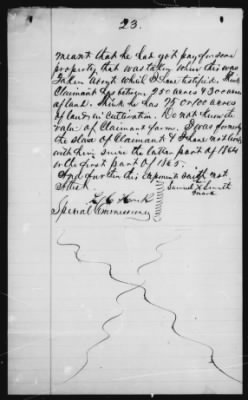 23.
meant that he had got pay for some
property that was taken when this was
taken about which I have testified. The
Claimant has between 250 acres & 300 acres
of land. think he has 75 or 100 acres
of land in cultivation. Do not know the
value of Claimant farm. I was formerly
the slave of Claimant & I have not lived
with him since the latter part of 1864
or the first part of 1865.
And further this deponent saith not
Attest Samuel X Smith
mark
Special Commissioner